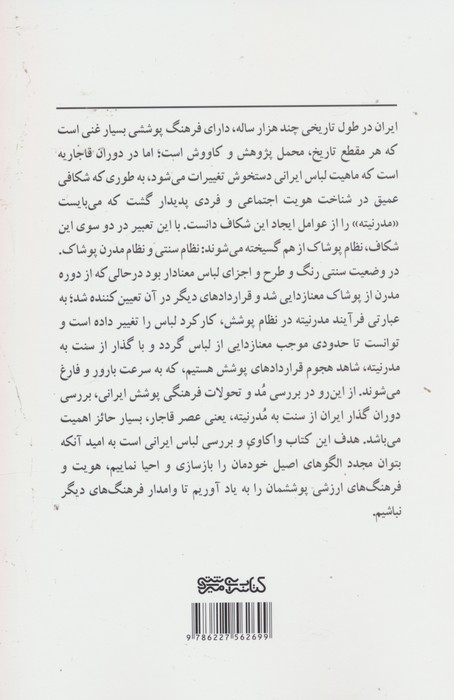 ایران در طول تاریخی چند هزار ساله، دارای فرهنگ پوششی بسیار غنی است
که هر مقطع تاریخ، محمل پژوهش و کاووش است؛ اما در دوران قاجاریه
است که ماهیت لباس ایرانی دستخوش تغییرات می‌شود، به طوری که شکافی
عمیق در شناخت هویت اجتماعی و فردی پدیدار گشت که می‌بایست
«مدرنیته» را از عوامل ایجاد این شکاف دانست. با این تعبیر در دو سوی این
شکاف، نظام پوشاک از هم گسیخته می‌شوند: نظام سنتی و نظام مدرن پوشاک.
در وضعیت سنتی رنگ و طرح و اجزای لباس معنادار بود درحالی که از دوره
مدرن از پوشاک معنازدایی شد و قراردادهای دیگر در آن تعیین کننده شد؛ به
عبارتی فرآیند مدرنیته در نظام پوشش، کارکرد لباس را تغییر داده است و
توانست تا حدودی موجب معنازدایی از لباس گردد و با گذار از سنت به
مدرنیته، شاهد هجوم قراردادهای پوشش هستیم، که به سرعت بارور و فارغ
می‌شوند. از این‌رو در بررسی مُد و تحولات فرهنگی پوشش ایرانی، بررسی
دوران گذار ایران از سنت به مُدرنیته، یعنی عصر قاجار، بسیار حائز اهمیت
می‌باشد. هدف این کتاب واکاوی و بررسی لباس ایرانی است به امید آنکه
بتوان مجدد الگوهای اصیل خودمان را بازسازی و احیا نماییم، هویت و
فرهنگ‌های ارزشی پوششمان را به یاد آوریم تا وامدار فرهنگ‌های دیگر
نباشیم.
9 786227 562699